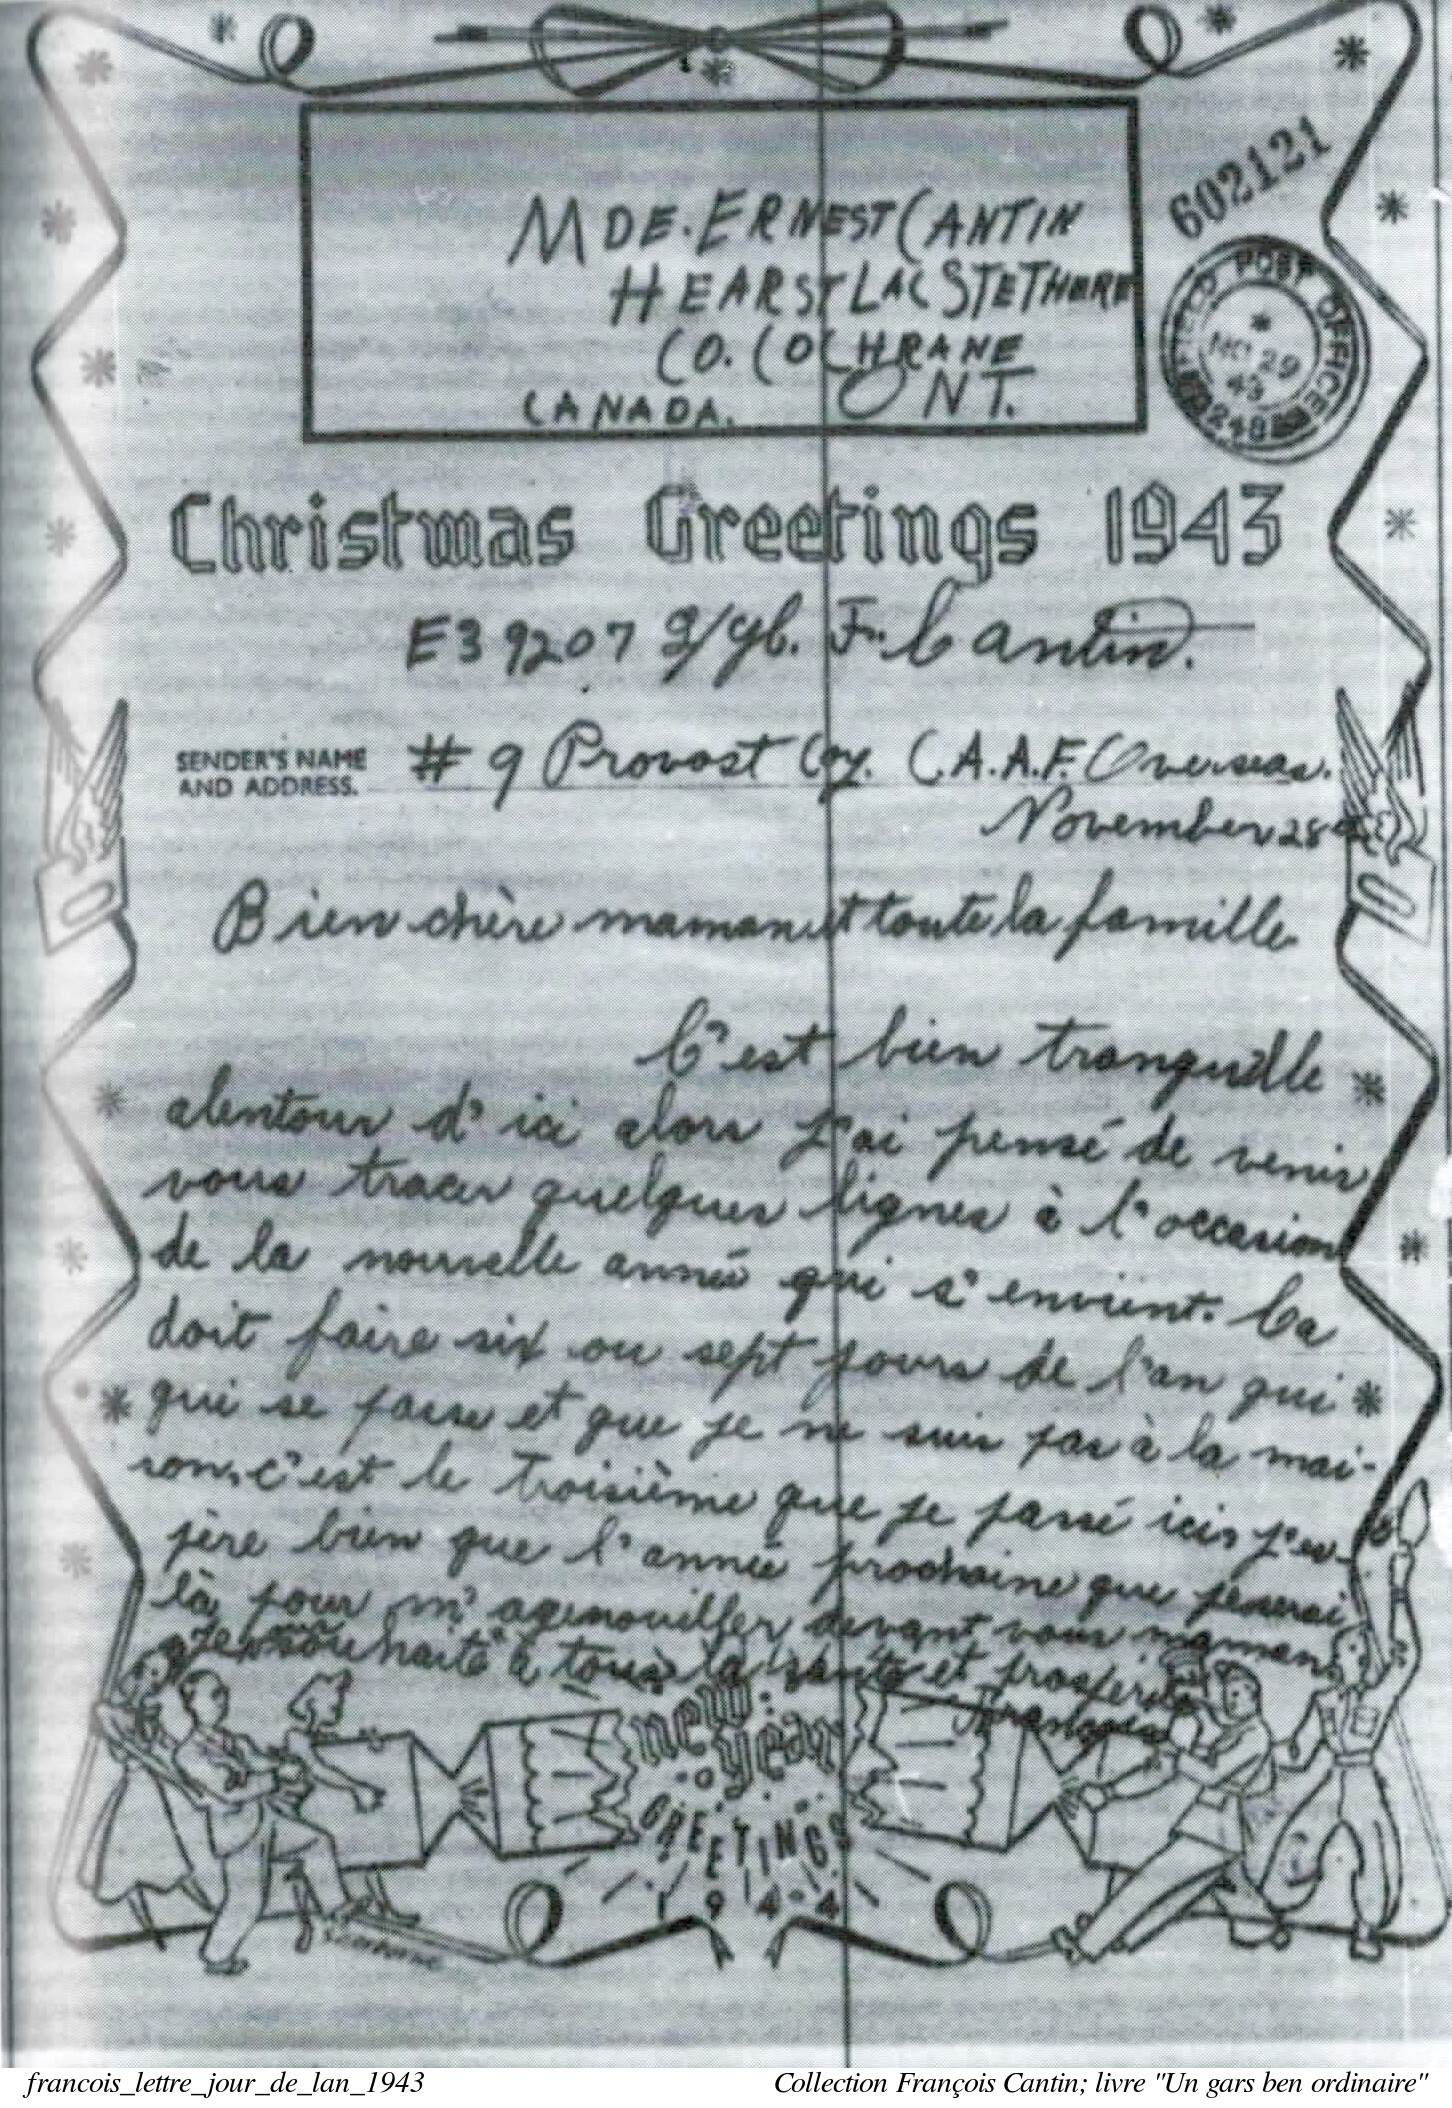 602121
MDE. ERNEST CANTIN
HEARST LAC STE THERE
CO. COCHRANE
ONT.
CANADA.
FIELD POST OFFICE
NO 29
43
248
Christmas Greetings 1943
E39207 Fr. Cantin.
SENDER'S NAME
AND ADDRESS.
# 9 Provost Coy. C.A.A.F. Overseas.
November 28
Bien chère maman et toute la famille
C'est bien tranquille
alentour d'ici alors j'ai pensé de venir
vous tracer quelques lignes à l'occasion
de la nouvelle année qui s'envient. Ca
doit faire six ou sept jours de l'an qui
qui se passe et que je ne suis pas à la mai-
son, c'est le troisième que je passé ici, j'es-
père bien que l'année prochaine que je serai
là pour m'agenouiller devant vous maman
Je souhaite à tous la santé et prosperité
François
New
Year
GREETINGS
1944
francois_lettre_jour_de_lan_1943
Collection François Cantin; livre "Un gars ben ordinaire"